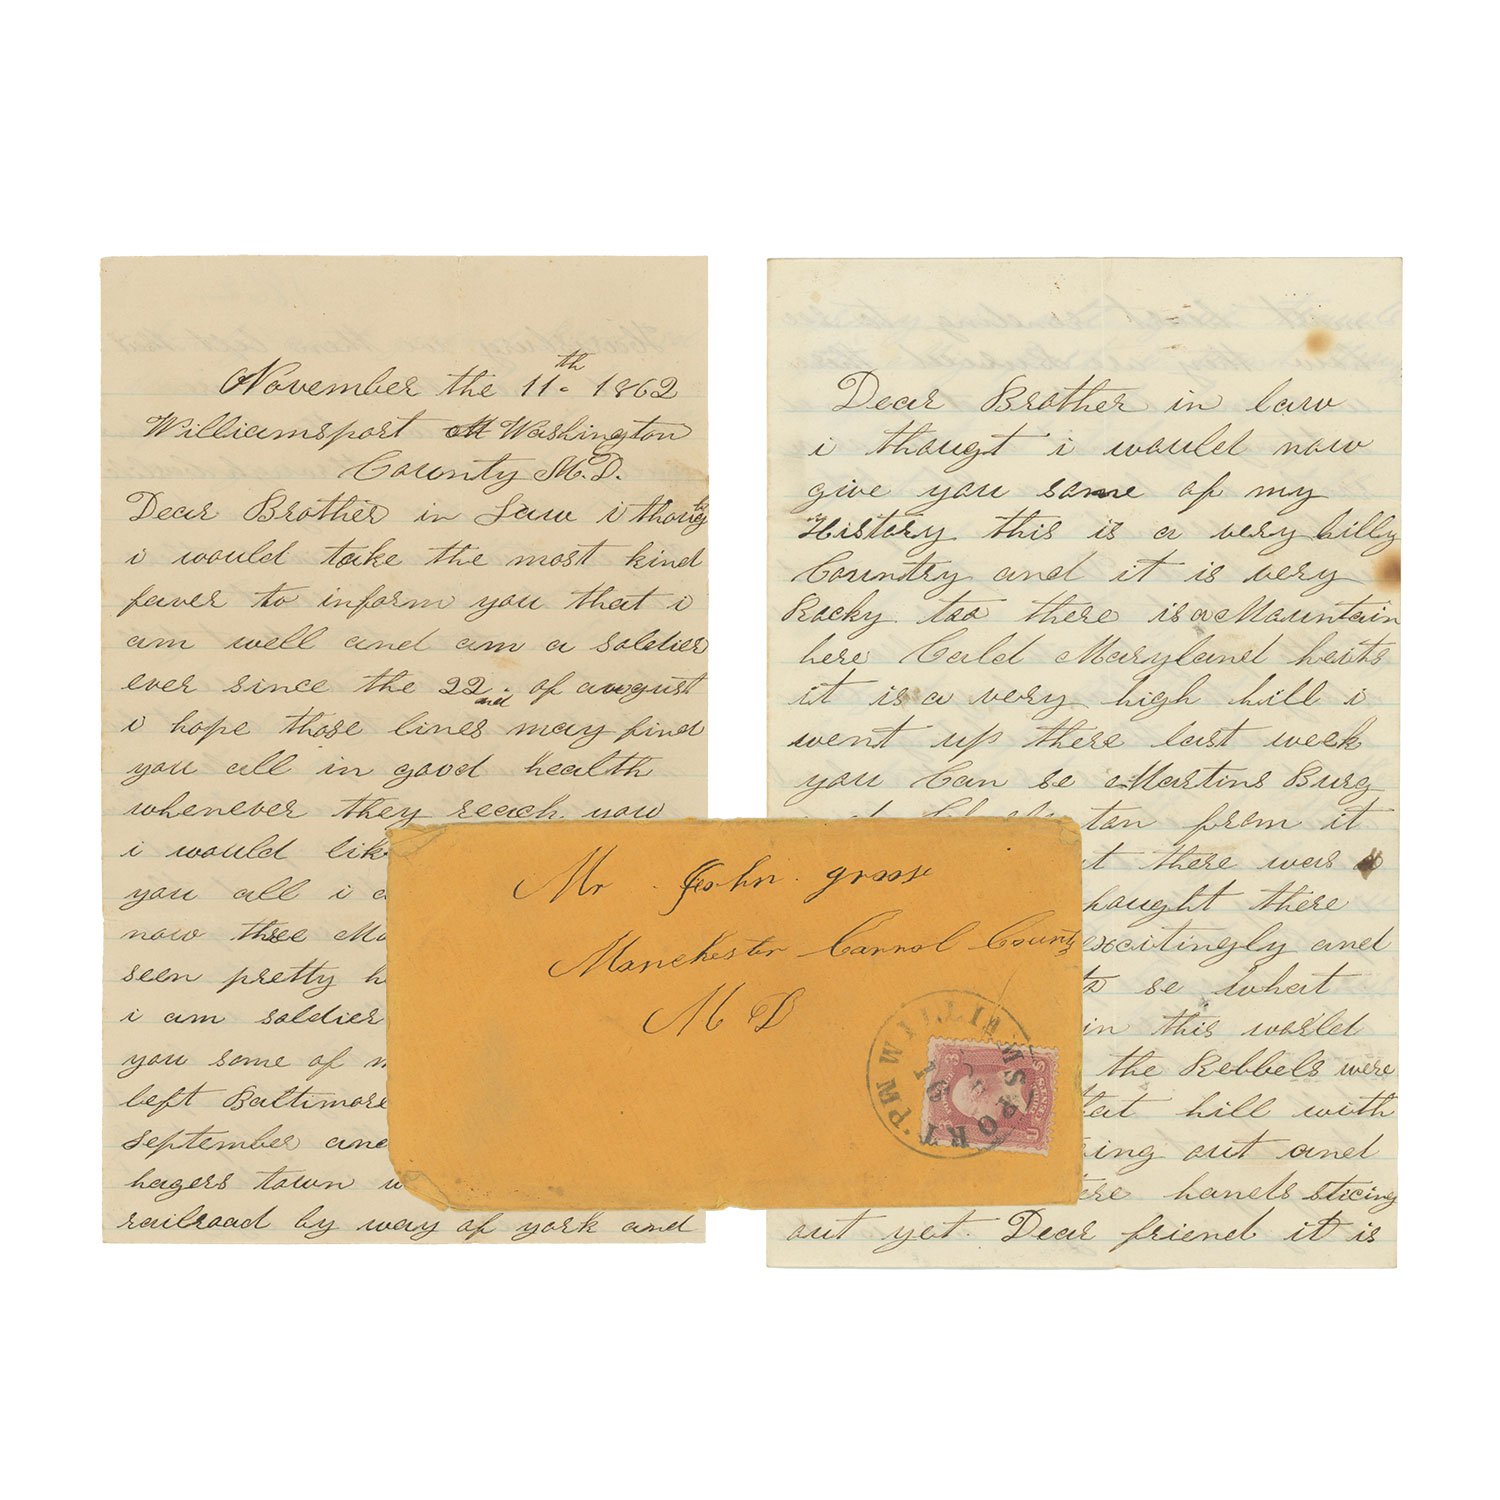 November the 11th. 1862
Williamsport Washington
County M.D.
Dear Brother in Law i thought
i would take the most kind
faver to inform you that i
am well and am a soldier
ever since the 22and. of august
i hope those lines may find
you all in good health
whenever they reach you
i would lik
you all i
now three Mo
seen pretty h
i am soldier
you some of m
left Baltimore
September and
hagers town w
railroad by way of york and
Dear Brother in law
i thougt i would now
give you some of my
History this is a very hilly
Country and it is very
Rocky too there is a Mountain
here Cald Maryland heits
it is a very high hill i
went up there last week
you Can se Martins Burg
ton from it
t there was a
hought there
excitingly and
se what
in this world
the Rebbels were
that hill with
ing out and
ere hands sticing
out yet. Dear friend it is
Mr. John. groose
Manchester Carrol County
M D
WILLIAMSPORT. MD.